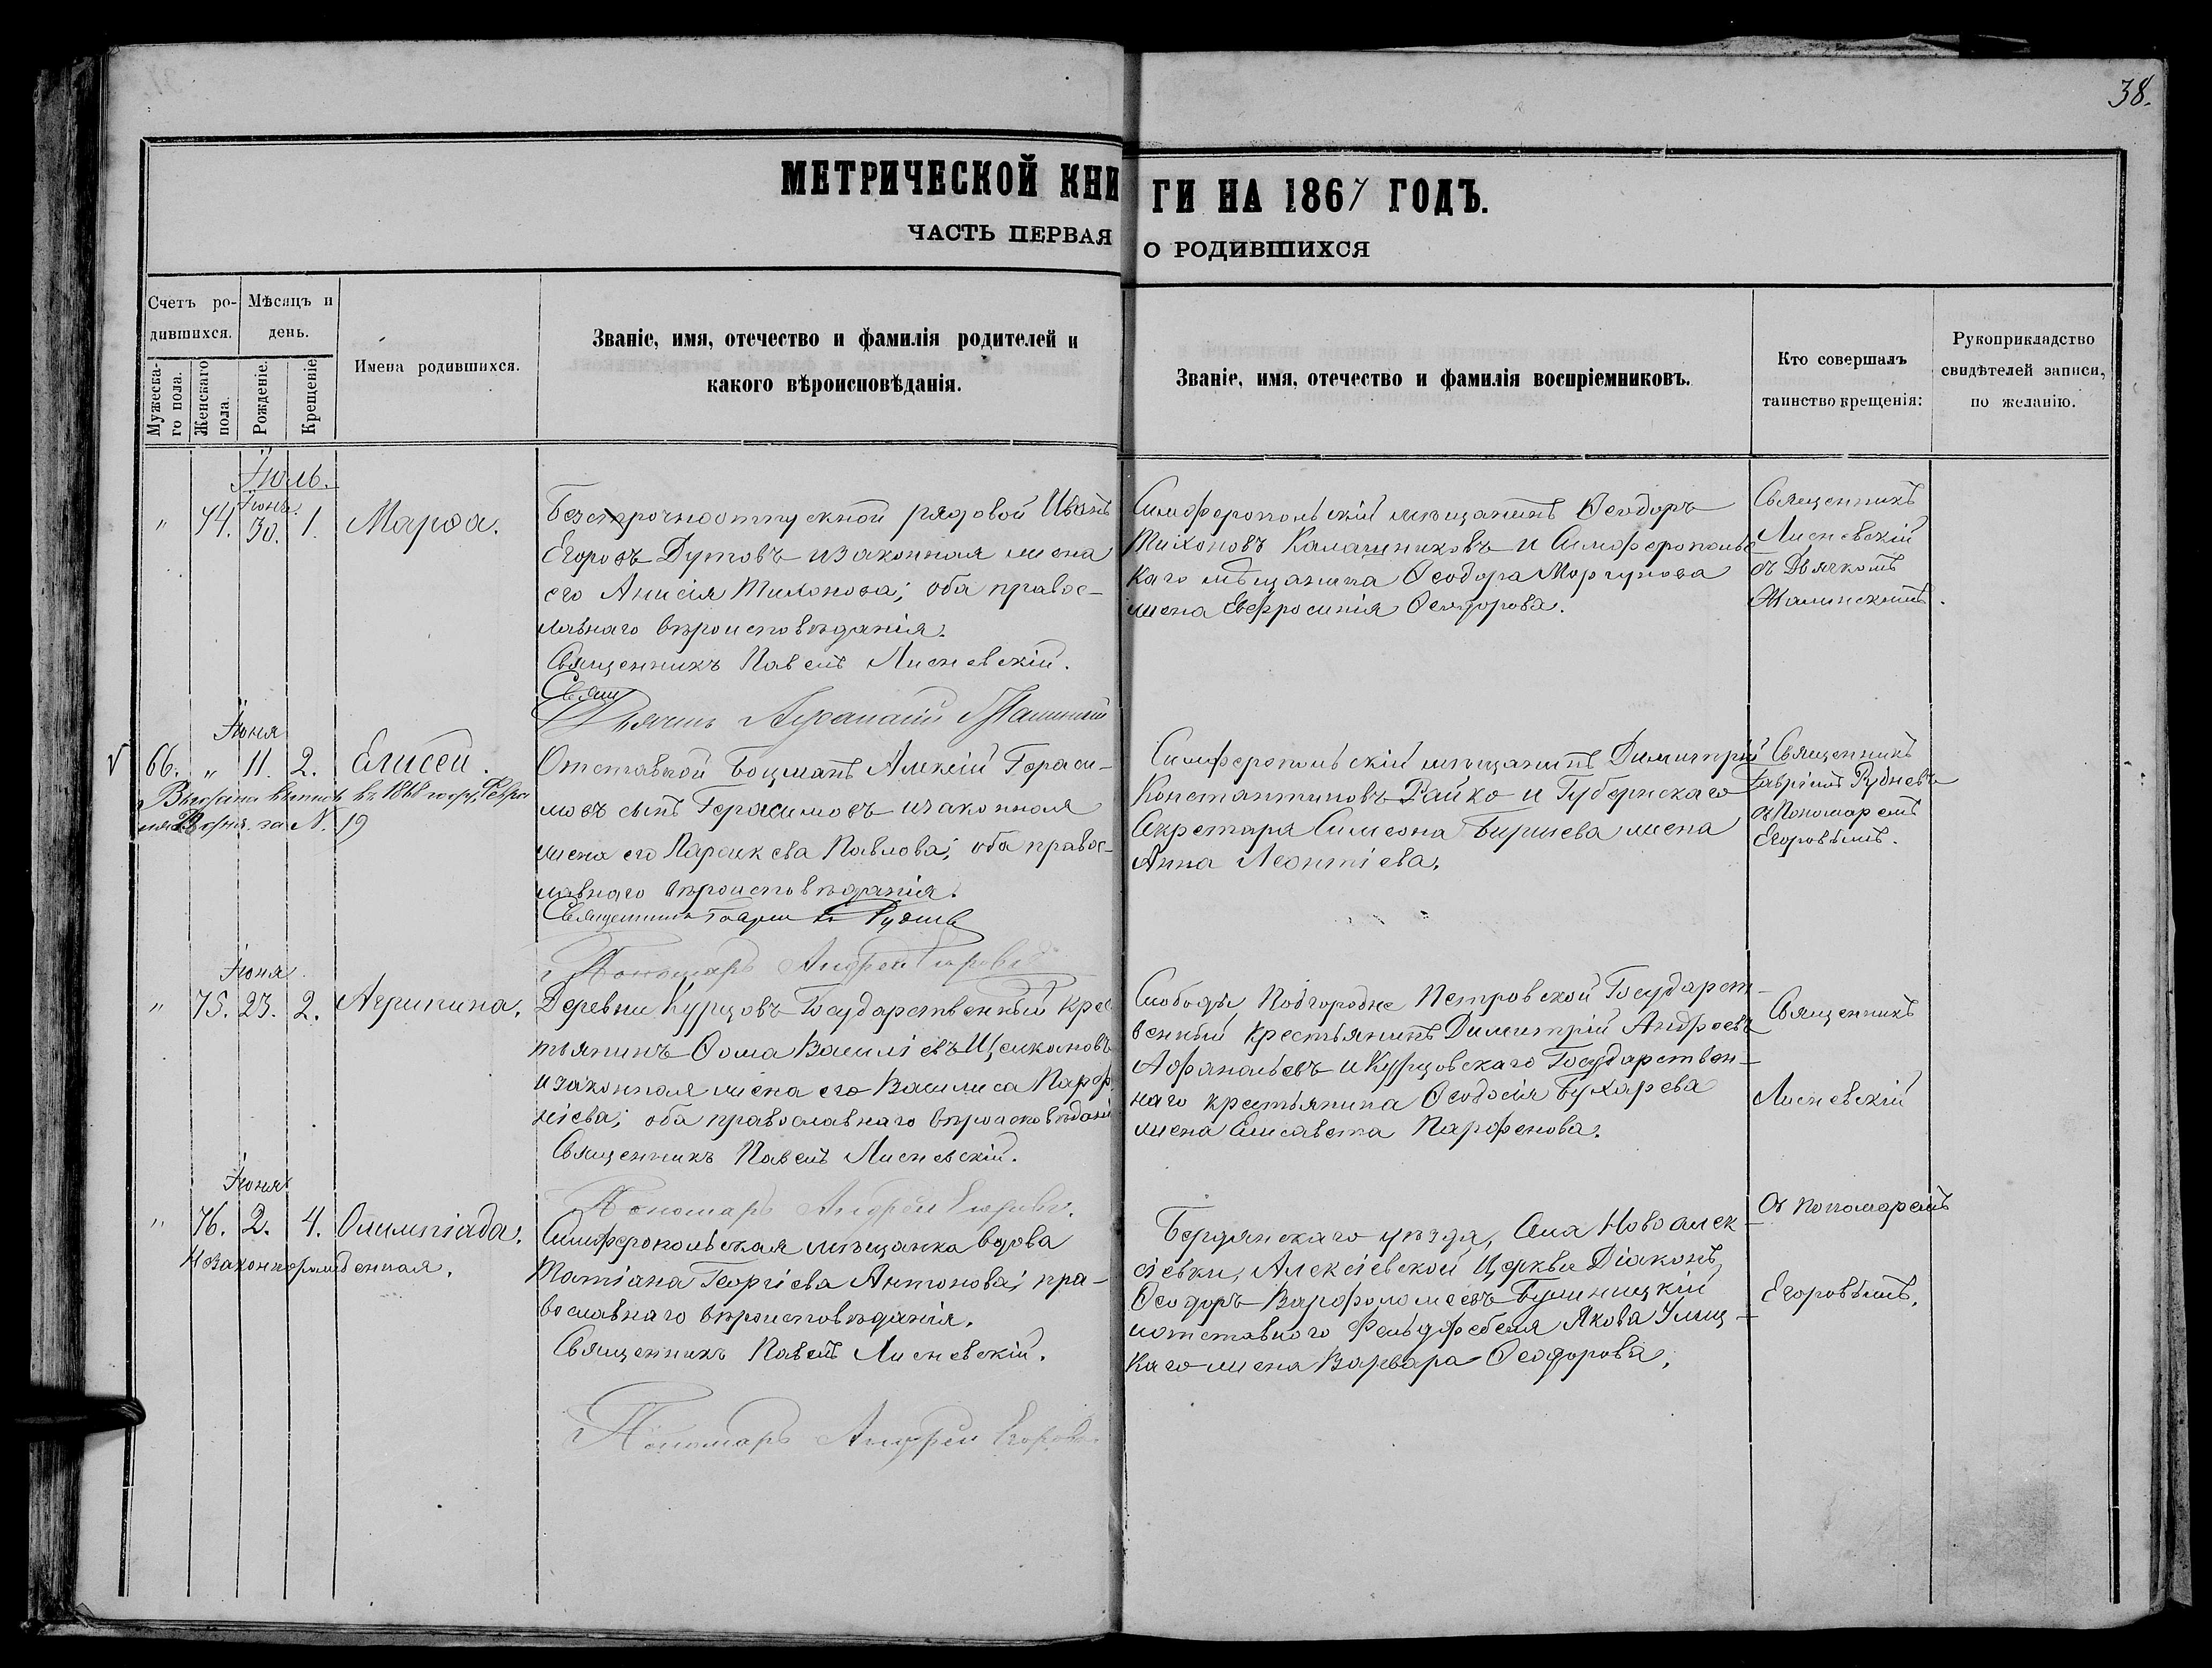 38.
МЕТРИЧЕСКОЙ КНИГИ НА 1867 ГОДЪ.
ЧАСТЬ ПЕРВАЯ О РОДИВШИХСЯ
Счетъ ро-
дившихся.
Мужеска-
го пола.
Женскаго
пола.
Мѣсяцъ и
день.
Рожденіе.
Крещеніе
Имена родившихся.
Званіе, имя, отечество и фамилія родителей и
какого вѣроисповѣданія.
Званіе, имя, отечество и фамилія воспріемниковъ.
Кто совершалъ
таинство крещенія:
Рукоприкладство
свидѣтелей записи,
по желанію.
Іюль.
Іюня.
" 74. 30. 1. Марѳа.
Безсрочноотпускной рядовой Иванъ
Егоровъ Дутовъ и законная жена
его Анисія Тихонова; оба правос-
лавнаго вѣроисповѣданія.
Священникъ Павелъ Лисневскій.
Свящ
Дьячекъ Аѳанасій
Симферопольскій мѣщанинъ Ѳеодоръ
Тихоновъ Калашниковъ и Симферопольс
каго мѣщанина Ѳеодора Моргунова
жена Евфросинія Ѳеодорова.
Священникъ
Лисневскій
съ Дьячкомъ
Жалинскимъ.
Іюня
√ 66. " 11. 2. Елисей.
въ 1868 году, Февра
за N. 19
Отставной Боцманъ Алексій Гераси-
мовъ сынъ Герасимовъ и законная
жена его Параскева Павлова; оба правос-
лавнаго вѣроисповѣданія.
Священникъ Гавріилъ Рудневъ
Пономарь Андрей Егоровъ
Симферопольскій мѣщанинъ Димитрій
Константиновъ Райко и Губернскаго
Секретаря Симеона Биршева жена
Анна Леонтіева.
Священникъ
Гавріилъ Рудневъ
съ Пономаремъ
Егоровымъ.
Іюня
" 75. 23. 2. Агрипина.
Деревни Курцовъ Государственный крес
тьянинъ Ѳома Василіевъ Щелкановъ
и законная жена его Василиса Парѳе
ніева; оба православнаго вѣроисповѣдані
Священникъ Павелъ Лисневскій.
Пономарь Андрей Егоровъ.
Слободы Подгородне Петровской Государст-
венный крестьянинъ Димитрій Андреевъ
Аѳанасьевъ и Курцовскаго Государствен-
наго крестьянина Ѳеодосія Бухарева
жена Елисавета Парѳенова.
Священникъ
Лисневскій
Іюня
" 76. 2. 4. Олимпіада.
Незаконнорожденная.
Симферопольская мѣщанка вдова
Татіана Георгіева Антонова; пра-
вославнаго вѣроисповѣданія.
Священникъ Павелъ Лисневскій.
Пономарь Андрей Егоровъ
Бердянскаго уѣзда, Села Новоалек-
сіевки, Алексіевской Церкви Діаконъ
Ѳеодоръ Варѳоломеевъ
и отставного Фельдфебеля Якова
каго жена Варвара Ѳеодорова.
съ пономаремъ
Егоровымъ.